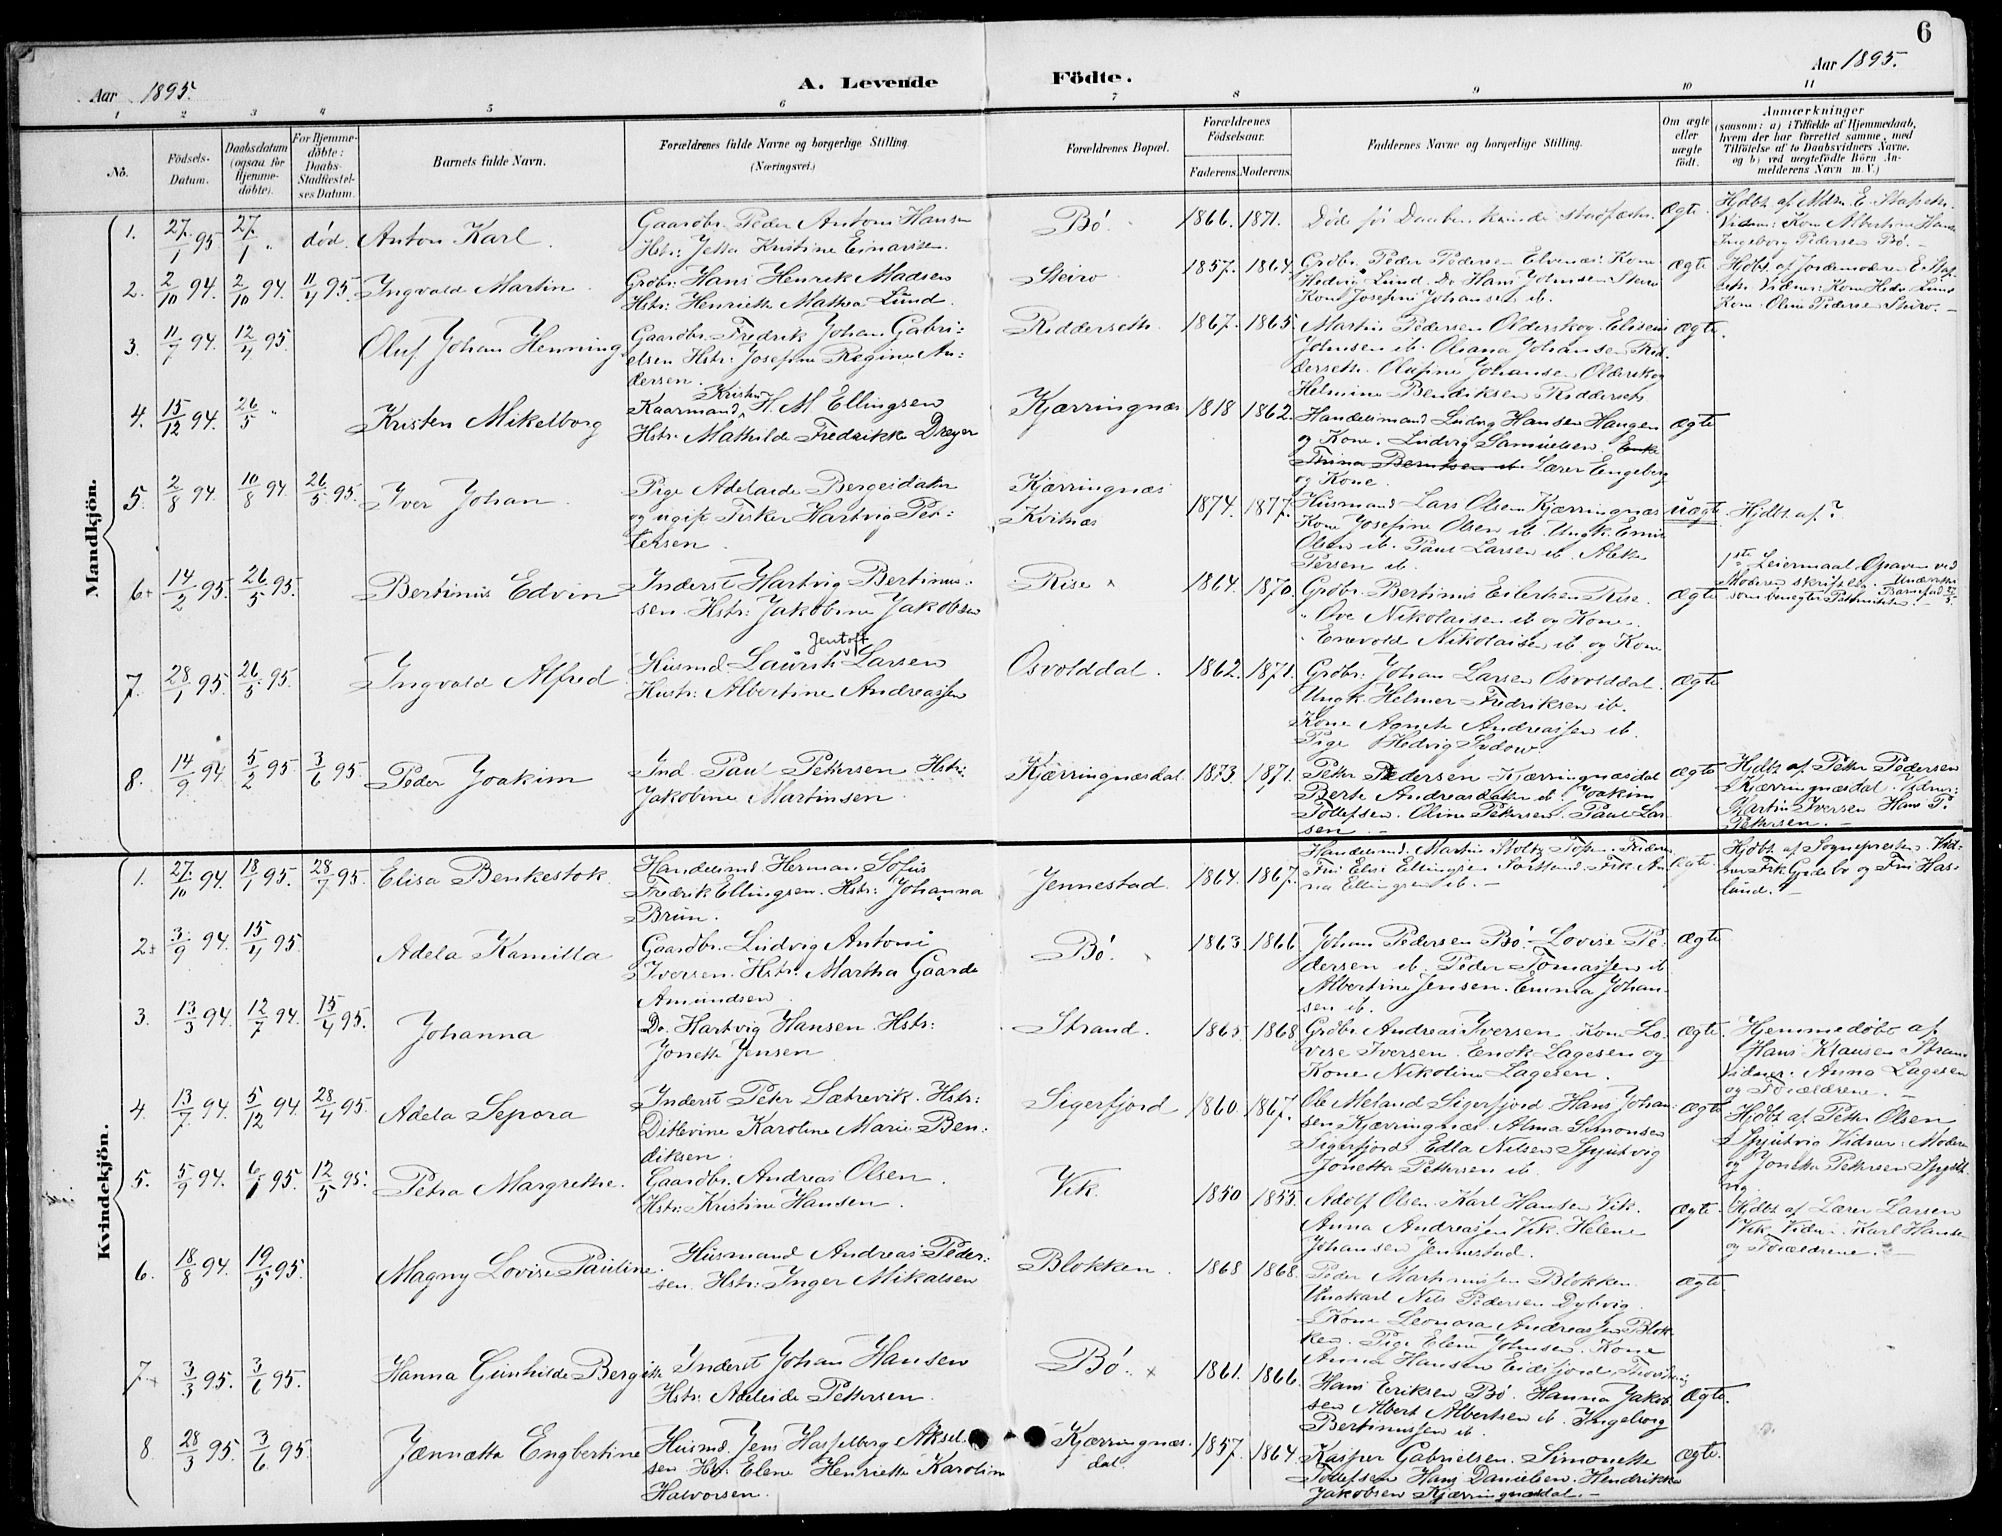 6
Aar 1895.
A. Levende Födte.
Aar 1895.
1 2 3 4 5 6 7 8 9 10 11
No.
Födsels-Datum.
Daabsdatum (ogsaa for Hjemme-döbte).
For Hjemme-döbte: Daabs-Stadfæstel-ses Datum.
Barnets fulde Navn.
Forældrenes fulde Navne og borgerlige Stilling.
(Næringsvei.)
Forældrenes Bopæl.
Forældrenes Födselsaar.
Faderens. Moderens.
Faddernes Navne og borgerlige Stilling.
Om ægte eller uægte födt.
Anmærkninger
(saasom: a) i Tilfælde af Hjemmedaab,
hvem der har forrettet samme, med
Tilföielse af to Daabsvidners Navne,
og b) ved uægtefödte Börn An-
melderens Navn m. V.)
Mandkjön.
1. 27/1 95 27/1 " død. Anton Karl.
Gaardbr. Peder Antoni Hansen
Hstr: Jetta Kristine Einarsen.
Bö. 1866. 1871.
Døde før Daaben kunde stadfæstes.
Ægte.
2. 2/10 94. 2/10 94. 11/4 95. Ingvald Martin.
Grdbr: Hans Henrik Madsen
Hstr: Henriette Mathea Lund.
Steiro 1857. 1864.
Grdbr. Peder Pedersen Elvenæs. Kone
Hedvig Lund. Do Hans Johnsen Steiro
Kone Josefine Johansen ib.
Ægte
3. 11/7 94. 12/4 95. Oluf Johan Henning
Gaardbr. Fredrik Johan Gabri-
elsen Hstr: Josefine Regine An-
dersen.
Ridderseth. 1867. 1865.
Martin Pedersen Olderskog. Elisens
Johnsen ib. Oliana Johansen Rid-
derseth. Olufine Johansen Olderskog
Helmine Bendiksen Ridderseth
Ægte.
4. 15/12 94. 26/5 " Kristen Mikelborg
Kristen
Kaarmand H. M Ellingsen
Hstr: Mathilde Fredrikke Dreyer
Kjærringnæs 1818 1862.
Handelsmand Ludvig Hansen Haugen
og Kone. Ludvig Samuelsen. Enke
Trina Berntsen ib. Lærer Engeberg
og Kone.
Ægte
5. 2/8 94. 10/8 94. 26/5 95. Iver Johan.
Pige Adelaide Bergesdatter
og ugift Fisker Hartvig Pet-
tersen.
Kjærringnæs
Kvitnæs
1874. 1877.
Husmand Lars Olsen Kjærringnæs
Kone Josefine Olsen ib. Ungk. Emil
Olsen ib. Paul Larsen ib.
Persen ib.
uægte Hjdbt. af?
1ste Leiermaal. Opgaven ved
Moderen skriftlig.
6. 14/2 95. 26/5 95. Bertinus Edvin
Inderst Hartvig Bertinus-
sen. Hstr: Jakobine Jakobsen
Rise 1864. 1870.
Grdbr. Bertinus Eilertsen Rise.
" Ove Nikolaisen ib og Kone.
" Enevold Nikolaisen ib og Kone
Ægte
7. 28/1 95. 26/5 95. Ingvald Alfred.
Jentoft
Husmd. Laurits Larsen
Hustr: Albertine Andreassen
Osvolddal. 1862. 1871.
Grdbr: Johan Larsen Osvolddal.
Ungk. Helmer Fredriksen ib.
Kone Agnete Andreassen ib.
Pige Hedvig Sydow.
Ægte
8. 14/9 94. 5/2 95 3/6 95. Peder Joakim
Ind. Paul Pettersen Hstr:
Jakobine Martinsen.
Kjærringnæsdal 1873. 1871.
Petter Pedersen Kjærringnæsdal
Berte Andreasdatter ib. Joakim
Tollefsen. Oline Pettersen. Paul Lar-
sen.
Ægte
Hjdbt. af Petter Pedersen
Kjærringnæsdal. Vidner:
Martin Iversen Hans P.
Pettersen.
Kvindekjön.
1. 27/10 94. 18/1 95. 28/7 95. Elisa Benkestok.
Handelsmd Herman Sofus
Fredrik Ellingsen. Hstr: Johanna
Brun.
Jennestad. 1864. 1867.
Fru Elise Ellingsen Sortland. Frk An-
na Ellingsen ib.
Ægte.
Hjdbt. af Sognepresten. Vid-
ner Frk Gjelsbø og Fru Has-
lund.
2. 3/9 94. 15/4 95. Adela Kamilla
Gaardbr. Ludvig Antoni
Iversen. Hstr: Martha Gaarde
Amundsen.
Bö. 1863. 1866.
Johan Pedersen Bö. Lovise Pe-
dersen ib. Peder Tomassen ib
Albertine Jensen. Emma Johan-
sen ib.
Ægte
3. 13/3 94. 12/7 94. 15/4 95. Johanna
Do. Hartvig Hansen Hstr:
Jonetta Jensen.
Strand. 1865 1868.
Grdbr. Andreas Iversen. Kone Lo-
vise Iversen. Enok Lagesen og
Kone Nikoline Lagesen.
Ægte.
Hjemmedøbt af
Hans Klausen Strand
Vidner. Anna Lagesen
og Forældrene.
4. 13/7 94. 5/12 94. 28/4 95. Adela Sepora
Inderst Peter Sætrevik. Hstr:
Ditlevine Karoline Marie Ben-
diksen.
Sigerfjord 1860. 1867.
Ole Meland Sigerfjord Hans Johan-
sen Kjærringnæs. Alma Simonsen
Sigerfjord. Edla Nilsen Spjutvig
Jonetta Pettersen ib.
Ægte
Hjdbt. af Petter Olsen
Spjutvig Vidner: Moderen
og Jonetta Pettersen Spjut-
vig
5. 5/9 94. 6/1 95. 12/5 95. Petra Margrethe.
Gaardbr. Andreas Olsen.
Hstr: Kristine Hansen.
Vik. 1850 1853.
Adolf Olsen. Karl Hansen Vik.
Anna Andreassen Vik. Helene
Johansen Jennestad.
Ægte.
Hjdbt. af Lærer Larsen
Vik. Vidn. Karl Hansen
og Forældrene.
6. 18/8 94. 19/5 95. Magny Lovise Pauline.
Husmand Andreas Peder-
sen. Hstr: Inger Mikalsen
Blokken. 1868 1868.
Peder Martinussen Blokken.
Ungkarl Nils Pedersen Dybvig.
Kone Leonora Andreassen Blok-
ken. Pige Elene Johnsen. Kone
Anna Hansen Eidsfjord.
Ægte.
7. 3/3 95. 3/6 95. Hanna Gunhilde Bergitte
Inderst Johan Hansen
Hstr: Adelaide Pettersen.
Bö. 1861. 1866.
Hans Eriksen Bö. Hanna Jakob-
sen Albert Albertsen ib. Ingeborg
Bertinussen ib.
Ægte.
8 28/3 95. 3/6 95. Jannetta Engbertine
Husmd. Jens Hasselberg Aksel-
sen Hstr: Elene Henriette Karoline
Halvorsen.
Kjærringnæs-
dal.
1857. 1864.
Kasper Gabrielsen. Simonette
Tollefsen Hans Danielsen. Hendrikke
Jakobsen Kjærringnæsdal.
Ægte.